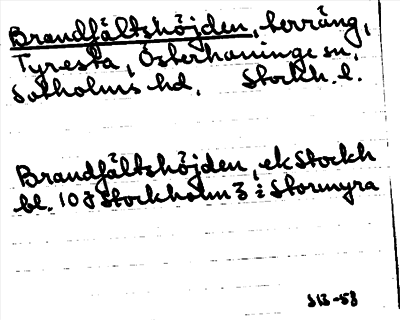 Brandfältshöjden, terräng,
Tyresta, Österhaninge sn,
Sotholms hd. Stockh. l.
Brandfältshöjden, ek Stockh
bl. 10 J Stockholm 3 i Stormyra